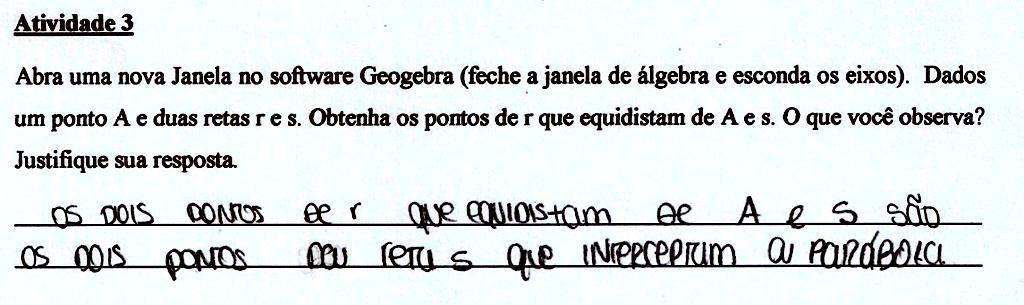 Atividade 3
Abra uma nova Janela no software Geogebra (feche a janela de álgebra e esconda os eixos). Dados
um ponto A e duas retas r e s. Obtenha os pontos de r que equidistam de A e s. O que você observa?
Justifique sua resposta.
OS DOIS PONTOS DE r QUE EQUIDISTAM DE A e S SÃO
OS DOIS PONTOS DA RETA S QUE INTERCEPTAM A PARÁBOLA